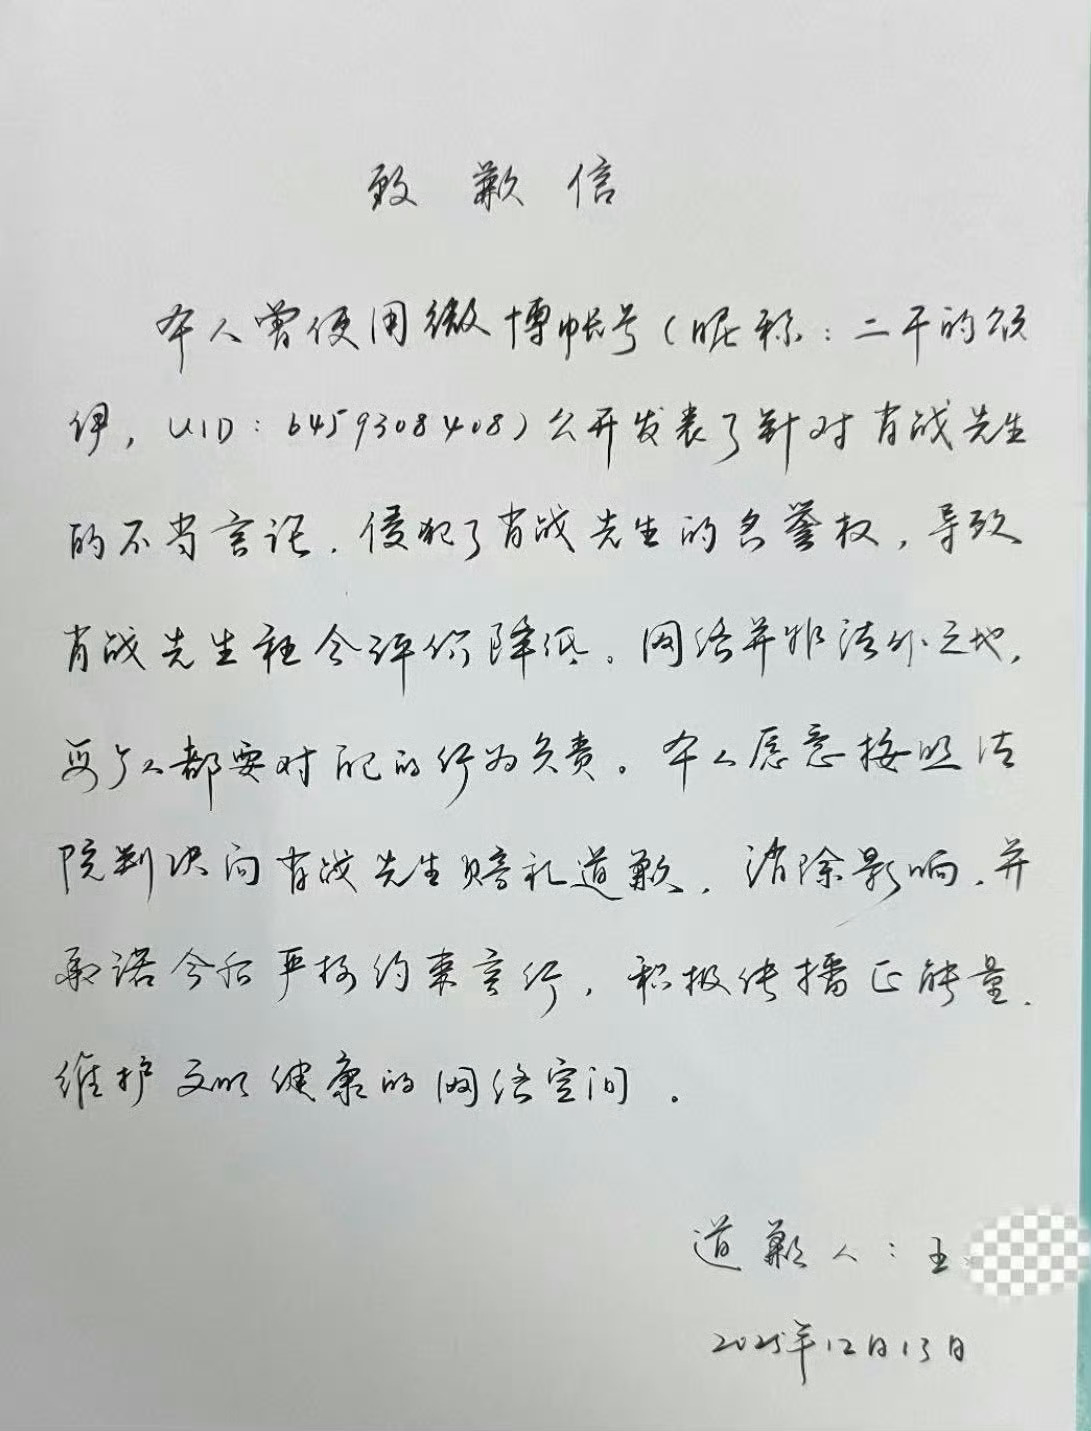 致歉信
本人曾使用微博帐号(昵称:二干的颂
伊,UID:6459308408)公开发表了针对肖战先生
的不当言论,侵犯了肖战先生的名誉权,导致
肖战先生社会评价降低。网络并非法外之地,
每个人都要对自己的行为负责。本人愿意按照法
院判决向肖战先生赔礼道歉,消除影响,并
承诺今后严格约束言行,积极传播正能量,
维护文明健康的网络空间。
道歉人:王
2025年12月13日